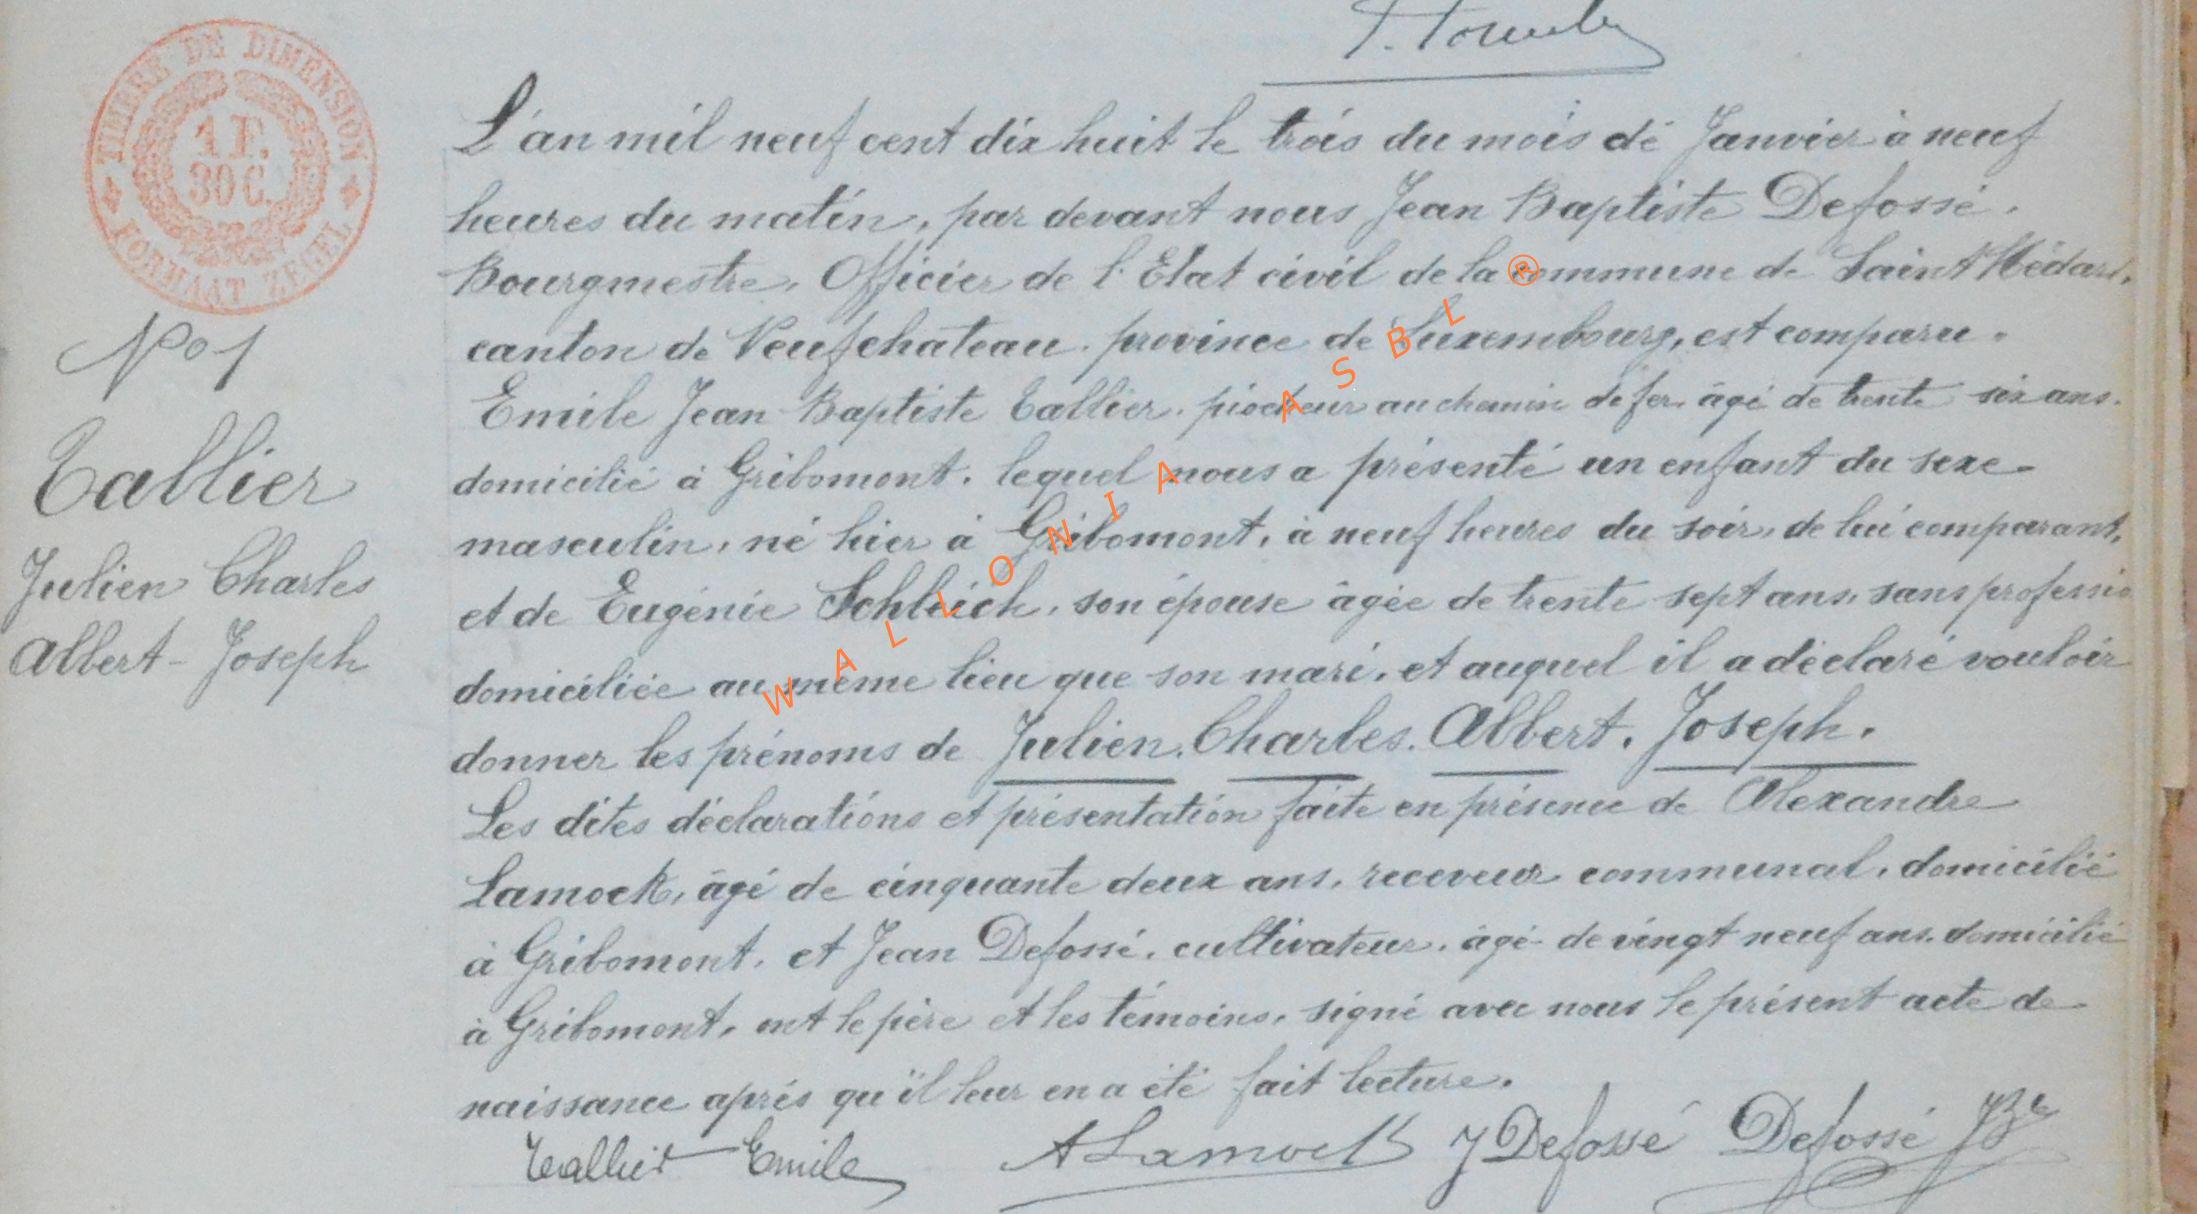 TIMBRE DE DIMENSION
1 F.
30 C.
FORMAAT ZEGEL
L'an mil neuf cent dix huit le trois du mois de Janvier à neuf
heures du matin, par devant nous Jean Baptiste Defossé.
Bourgmestre. Officier de l'Etat civil de la commune de Saint Médard,
canton de Neufchateau. province de Luxembourg, est comparu.
Emile Jean-Baptiste Tallier. piocheur au chemin de fer. âgé de trente six ans.
domicilié à Gribomont. lequel nous a présenté un enfant du sexe
masculin, né hier à Gribomont, à neuf heures du soir, de lui comparant,
et de Eugénie Schleich, son épouse âgée de trente sept ans, sans professio
domiciliée au même lieu que son mari, et auquel il a déclaré vouloir
donner les prénoms de Julien. Charles. Albert. Joseph.
Les dites déclarations et présentation faite en présence de Alexandre
Lamock, âgé de cinquante deux ans, receveur communal, domicilié
à Gribomont, et Jean Defossé, cultivateur, âgé de vingt neuf ans. domicilié
à Gribomont, ont le père et les témoins, signé avec nous le présent acte de
naissance aprés qu'il leur en a été fait lecture.
Tallier Emile A Lamock J Defossé Defossé JBte
N° 1
Tallier
Julien Charles
Albert-Joseph
WALLONIA ASBL ®